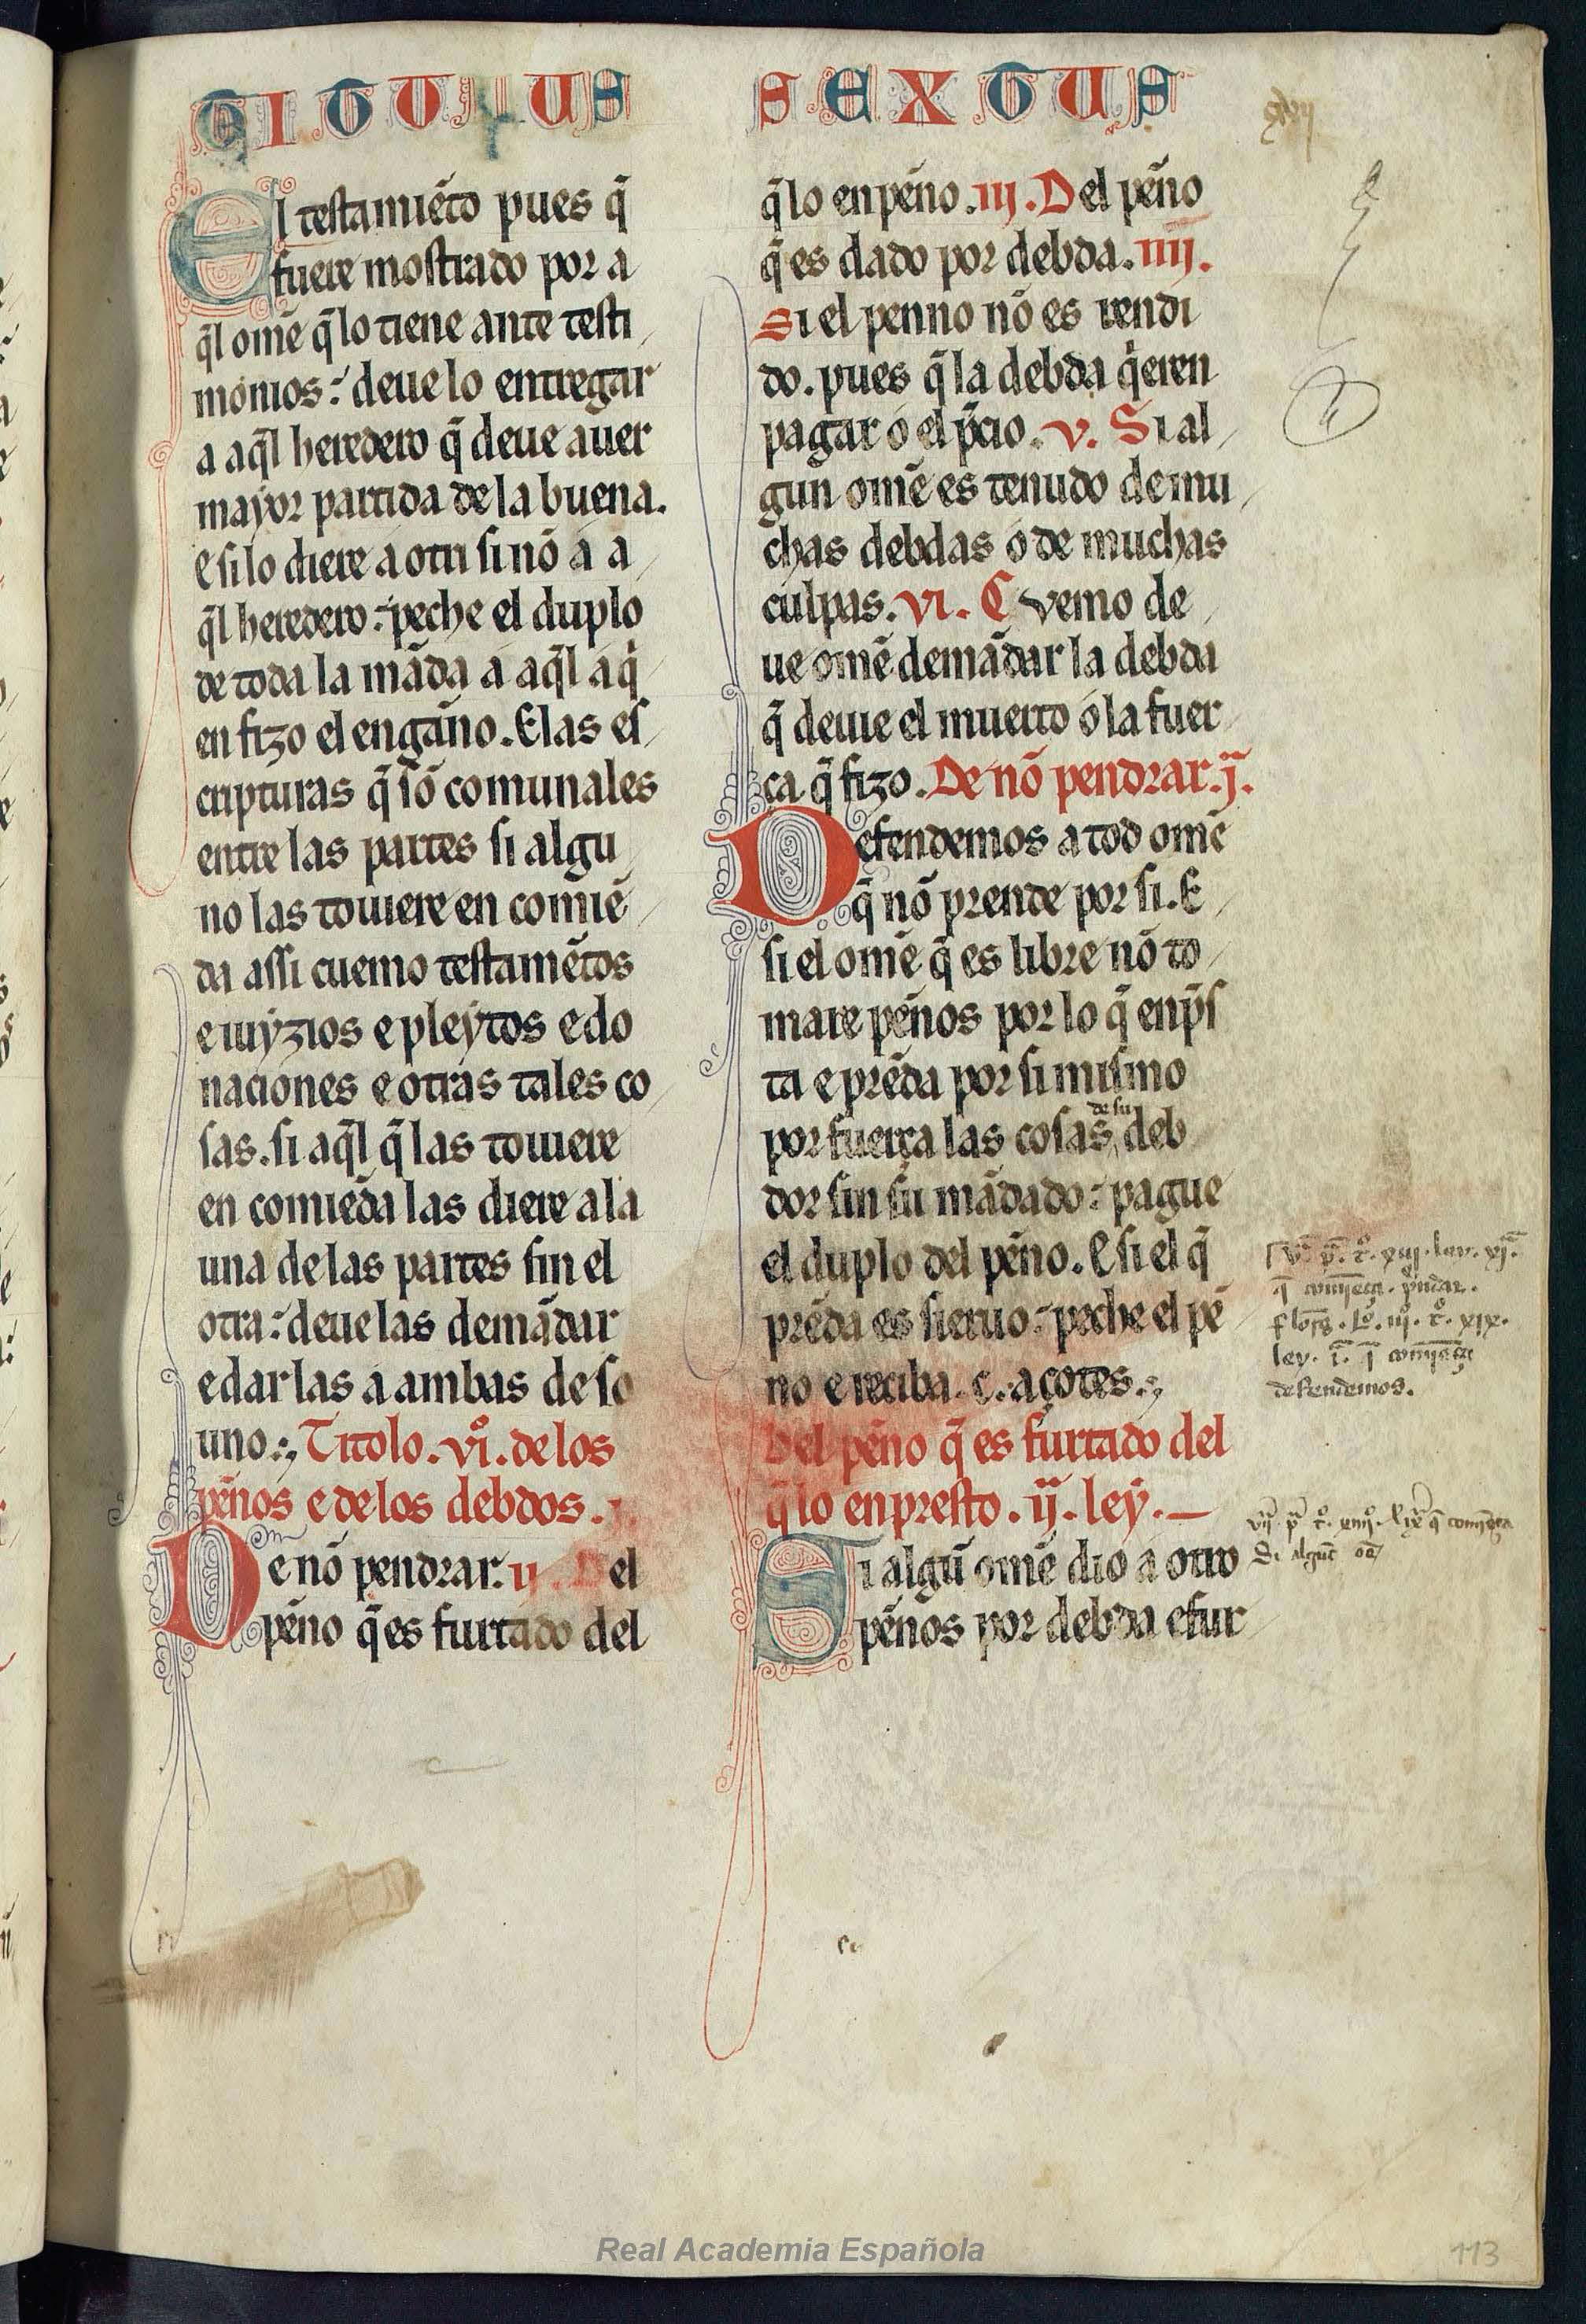 TITULUS SEXTUS
El testamiẽto pues q̃
fuere mostrado por a
q̃l omẽ q̃ lo tiene ante testi
monios: deue lo entregar
a aq̃l heredero q̃ deue auer
mayor partida de la buena.
E si lo diere a otri si nõ a a
q̃l heredero: peche el duplo
de toda la mãda a aq̃l a q̇
en fizo el engãno. E las es
cripturas q̃ sõ comunales
entre las partes si algu
no las touiere en comiẽ
da assi cuemo testamẽtos
e iuyzios e pleytos e do
naciones e otras tales co
sas. si aq̃l q̃ las touiere
en comiẽda las diere a la
una de las partes sin el
otra: deue las demãdar
e dar las a ambas de so
uno. Titolo. vi̊. de los
pẽnos e de los debdos.
De nõ pendrar. ii Del
pẽno q̃ es furtado del
q̃ lo enpẽno. iii. Del pẽno
q̃ es dado por debda. iiii.
Si el penno nõ es rendi
do. pues q̃ la debda q̇eren
pagar o el p̃cio. v. Si al
gun omẽ es tenudo de mu
chas debdas o de muchas
culpas. vi. Cvemo de
ue omẽ demãdar la debda
q̃ deuie el muerto o la fuer
ça q̃ fizo. De nõ pendrar. j̃.
Defendemos a tod omẽ
q̃ nõ prende por si. E
si el omẽ q̃ es libre nõ to
mare pẽnos por lo q̃ enp̃s
ta e prẽda por si mismo
por fuerça las cosas de su deb
dor sin su mãdado: pague
el duplo del pẽno. E si el q̃
prẽda es sieruo: peche el pẽ
no e reciba. c. açotes.
Del pẽno q̃ es furtado del
q̃ lo enpresto. ij̃. ley.
Si algũ omẽ dio a otro
pẽnos por debda e fur
q̃ comjẽça
ley. j̃. q̃ comjẽça
defendemos.
q̃ comjẽça
Real Academia Española
113